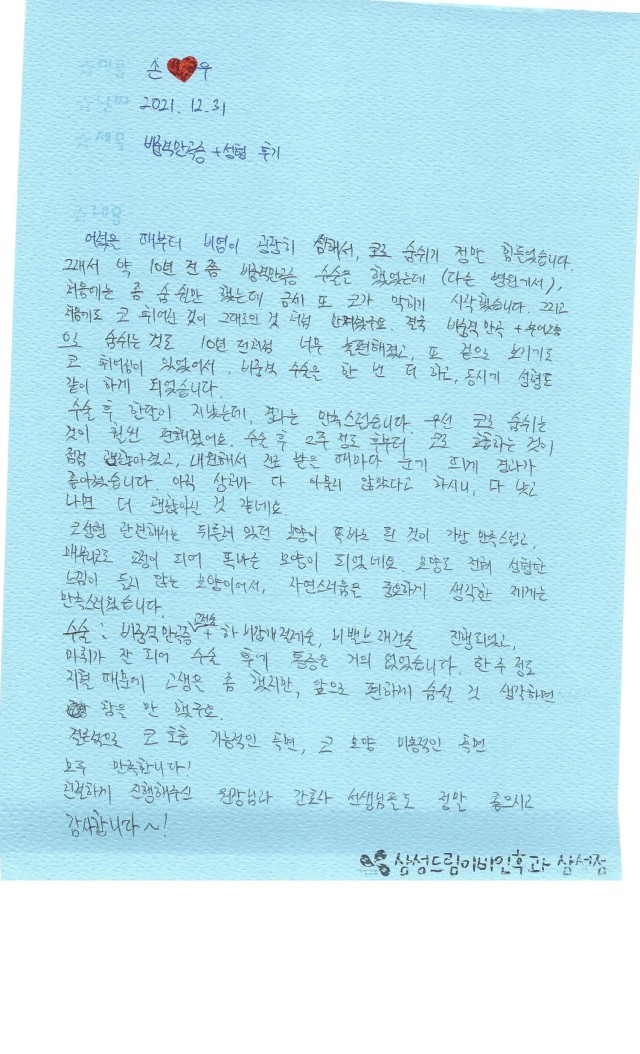 손♥우
2021. 12. 31
비중격만곡증 + 성형 후기
어렸을 때부터 비염이 굉장히 심해서, 코로 숨쉬기 정말 힘들었습니다.
그래서 약 10년 전 쯤 비중격만곡증 수술은 했었는데 (다른 병원에서),
처음에는 좀 숨쉴만 했는데 금새 또 코가 막히기 시작했습니다. 그리고
처음에도 코 휘어진 것이 그대로인 것 처럼 느껴졌구요. 결국 비중격 만곡 +
으로 숨쉬는 것도 10년 전처럼 너무 불편해졌고, 또 겉으로 보기기도
코 휘어짐이 있었어서, 비중격 수술은 한 번 더 하고, 동시에 성형도
같이 하게 되었습니다.
수술 후 한달이 지났는데, 결과는 만족스럽습니다. 우선 코로 숨쉬는
것이 훨씬 편해졌어요. 수술 후 2주 정도 후부터 코로 호흡하는 것이
점점 괜찮아졌고, 내원해서 진료 받을 때마다 눈에 띄게 결과가
좋아졌습니다. 아직 상처가 다 아물지 않았다고 하시니, 다 낫고
나면 더 괜찮아질 것 같네요.
코성형 관련해서는 뒤틀려 있던 모양이 똑바로 된 것이 가장 만족스럽고,
매부리코도 교정이 되어 똑바른 모양이 되었네요. 모양도 전혀 성형한
느낌이 들지 않는 모양이어서, 자연스러움을 중요하게 생각한 제게는
만족스러웠습니다.
수술 : 비중격만곡증 교정술 + 하비갑개절제술, 비밸브재건술 진행되었고,
마취가 잘 되어 수술 후에 통증은 거의 없었습니다. 한 주 정도
지혈 때문에 고생은 좀 했지만, 앞으로 편하게 숨쉴 것 생각하면
참을 만 했구요.
결론적으로 코 호흡 기능적인 측면, 코 모양 미용적인 측면
모두 만족합니다!
친절하게 진행해주신 원장님과 간호사 선생님들도 정말 좋으시고
감사합니다~!
삼성드림이비인후과 삼성점